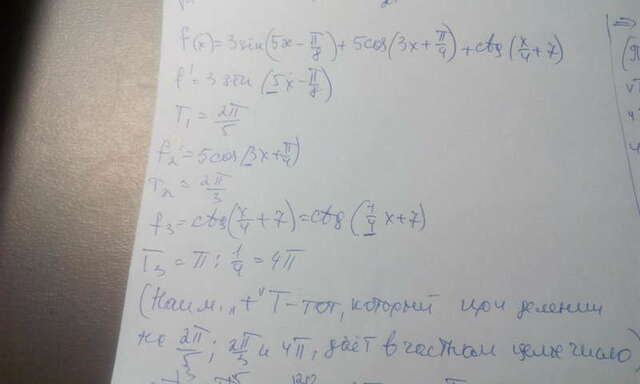 f(x)=3sin(5x-π/8)+5cos(3x+π/4)+ctg(x/4+7)
f'=3sin(5x-π/8)
T₁=2π/5
f₂'=5cos(3x+π/4)
T₂=2π/3
f₃=ctg(x/4+7)=ctg(1/4 x+7)
T₃=π:1/4=4π
(Наим. "+" T-тот, который при делении
на 2π/5; 2π/3 и 4π, даёт в частном целое число)